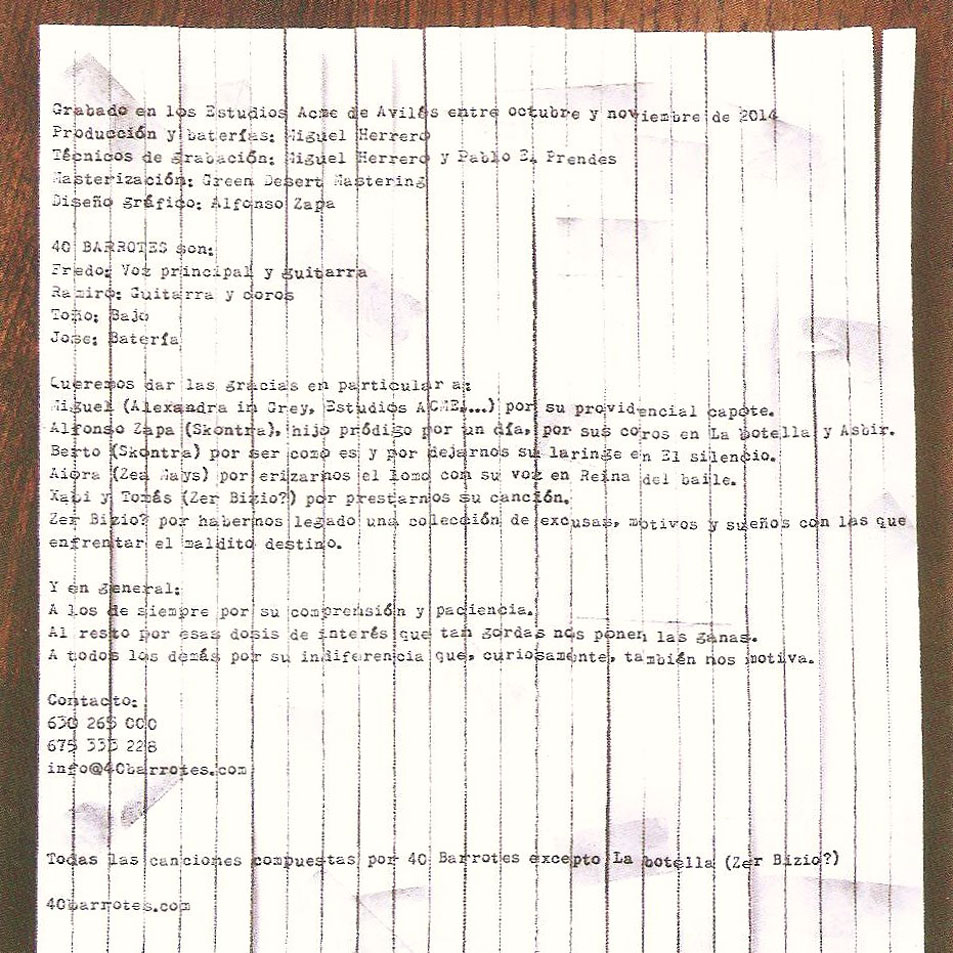 Grabado en los Estudios Acme de Avilés entre octubre y noviembre de 2014
Producción y baterías: Miguel Herrero
Técnicos de grabación: Miguel Herrero y Pablo E. Prendes
Masterización: Green Desert Mastering
Diseño gráfico: Alfonso Zapa
40 BARROTES son:
Fredo: Voz principal y guitarra
Ramiro: Guitarra y coros
Toño: Bajo
Jose: Batería
Queremos dar las gracias en particular a:
Miguel (Alexandra in Grey, Estudios ACME,...) por su providencial capote.
Alfonso Zapa (Skontra), hijo pródigo por un día, por sus coros en La botella y Asbir.
Berto (Skontra) por ser como es y por dejarnos su laringe en El silencio.
Aiora (Zea Mays) por erizarnos el lomo con su voz en Reina del baile.
Xabi y Tomás (Zer Bizio?) por prestarnos su canción.
Zer Bizio? por habernos legado una colección de excusas, motivos y sueños con las que
enfrentar el maldito destino.
Y en general:
A los de siempre por su comprensión y paciencia.
Al resto por esas dosis de interés que tan gordas nos ponen las ganas.
A todos los demás por su indiferencia que, curiosamente, también nos motiva.
Contacto:
630 265 000
675 333 228
info@40barrotes.com
Todas las canciones compuestas por 40 Barrotes excepto La botella (Zer Bizio?)
40barrotes.com